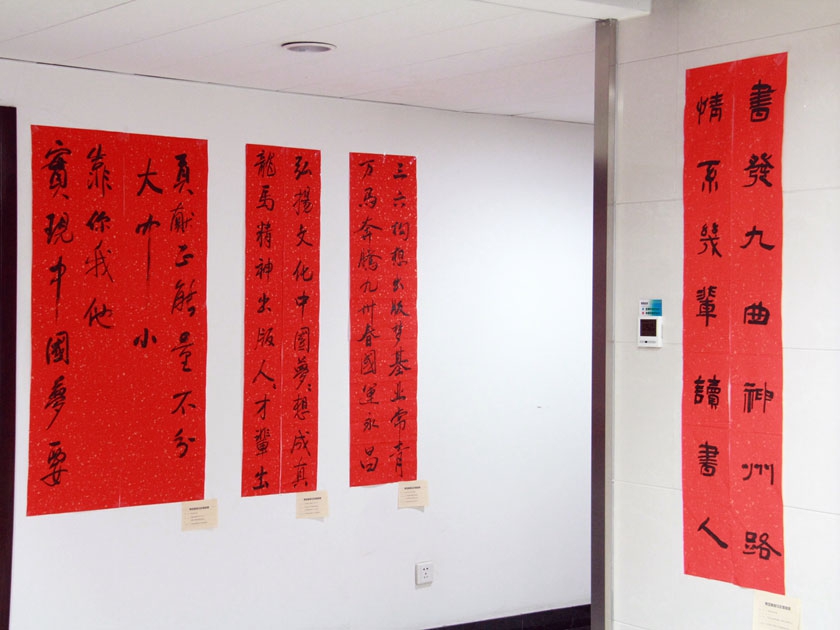 贡献正能量不分
大中小
實現中國夢要
靠你我他
弘揚文化中国夢々想成真
龍馬精神出版人々才輩出
三六构想出版梦基业常青
万馬奔腾九州春國運永昌
書發九曲神州路
情系幾輩讀書人